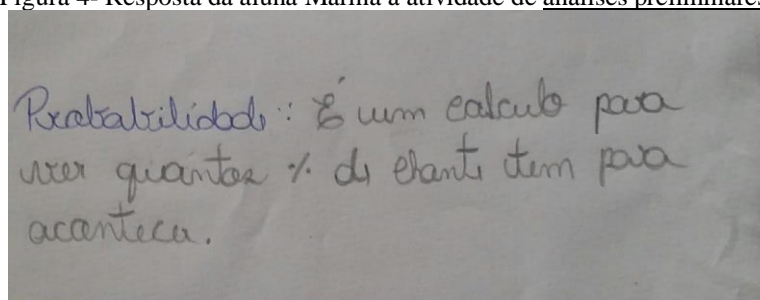 Figura 4- Resposta da aluna Marina a atividade de análises preliminares
Probabilidade: É um calculo para
ver quantos % de chance tem para
acontecer.